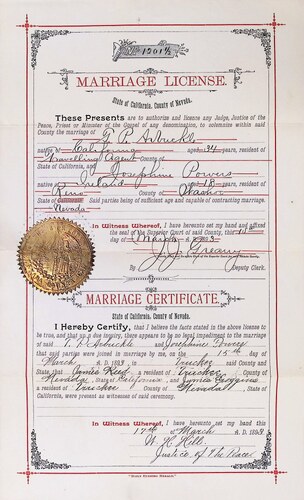 MARRIAGE LICENSE.
State of California, County of Nevada.
These Presents are to authorize and license any Judge, Justice of the
Peace, Priest or Minister of the Gospel of any denomination, to solemnize within said
County the marriage of T. P. Arbuckle
native of California aged 34 years, resident of
Travelling Agent County of
State of California, and Josephine Powers
native of Ireland aged 18 years, resident of
Reno County of Washoe
State of
Nevada Said parties being of sufficient age and capable of contracting marriage.
In Witness Whereof, I have hereunto set my hand and affixed
the seal of the Superior Court of said County, this
day of March A. D.
J. J. Greany
By Deputy Clerk.
MARRIAGE CERTIFICATE.
State of California, County of Nevada.
I Hereby Certify, that I believe the facts stated in the above license to
be true, and that upon due inquiry, there appears to be no legal impediment to the marriage
of said T. P. Arbuckle and Josephine Powers
that said parties were joined in marriage by me, on the 15th day of
March A. D. in Truckee County of
State that Annie Reid a resident of Truckee County of
Nevada, State of California and
a resident of Truckee County of State of
California, were present as witnesses of said ceremony.
In Witness Whereof, I have hereunto set my hand this
17th of March A. D.
W. H. Hill
Justice of The Peace